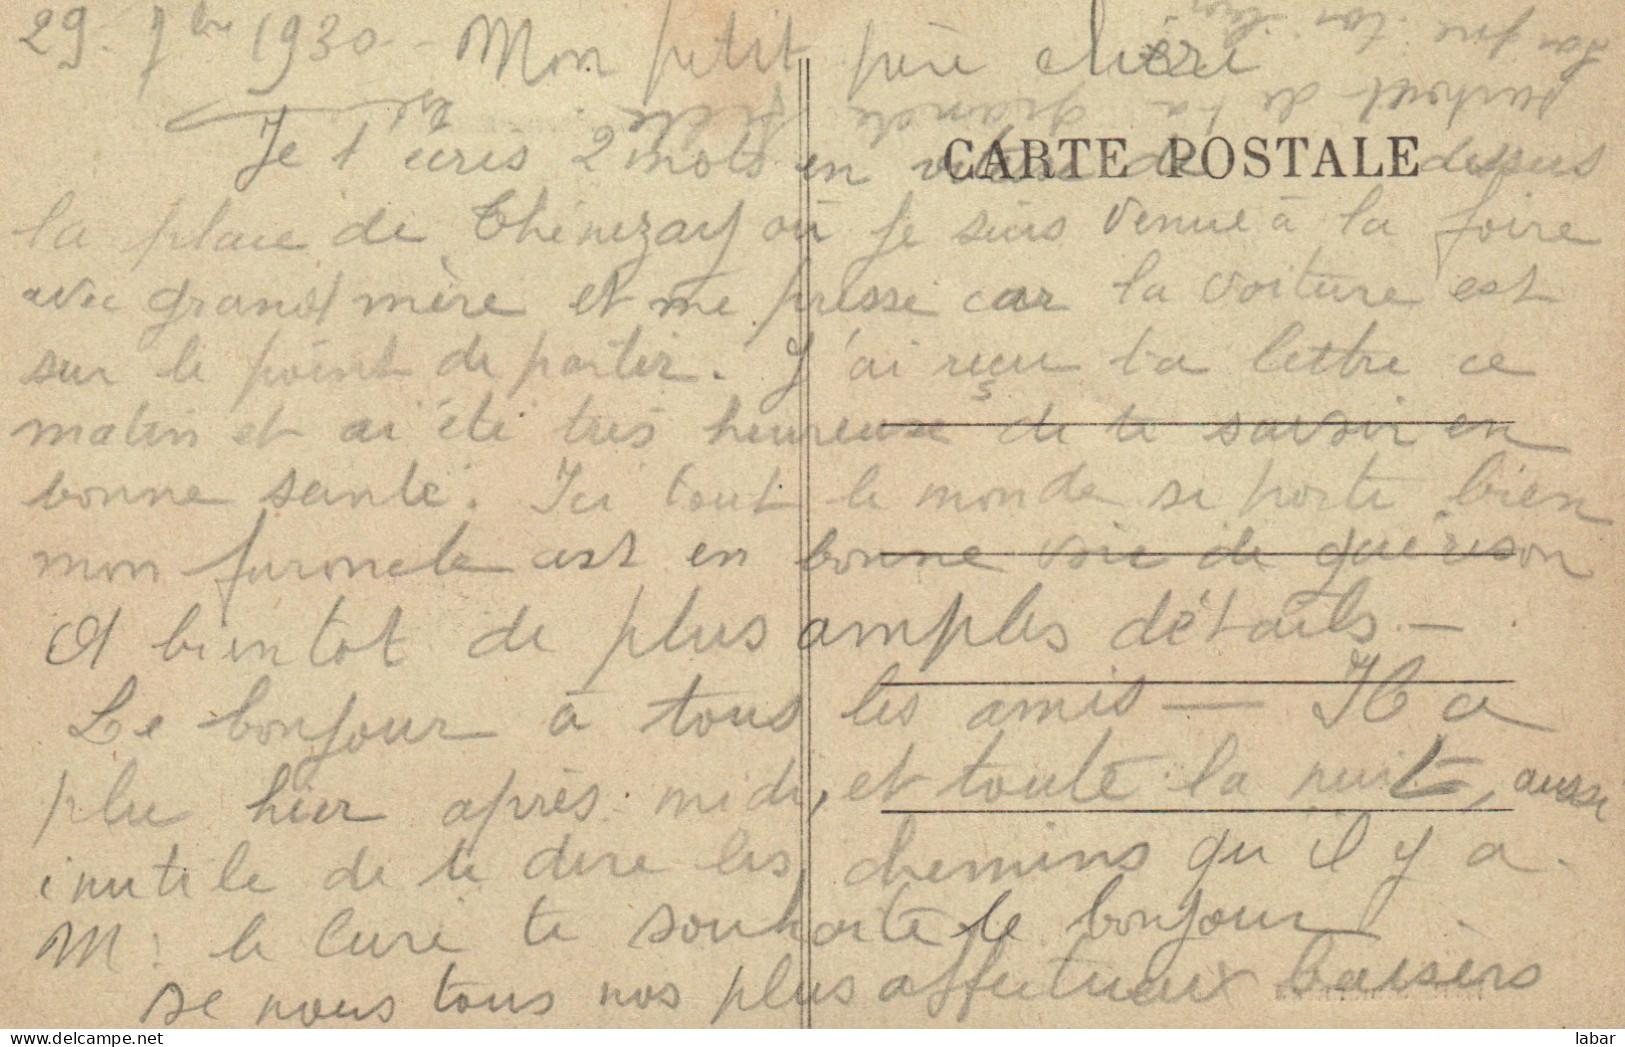 29 - 7bre 1930 - Mon petit père chéri
Je t'écris 2 mots en vitesse de dessus
CARTE POSTALE
la place de Thénezay où je suis venue à la foire
avec grand mère et me presse car la voiture est
sur le point de partir. J'ai reçu ta lettre ce
matin et ai été très heureuse de te savoir en
bonne santé. Ici tout le monde se porte bien
mon furoncle est en bonne voie de guérison
A bientot de plus amples détails -
Le bonjour à tous les amis - Il a
plu hier après midi, et toute la nuit, aussi
inutile de te dire les chemins qu'il y a -
M. le curé te souhaite le bonjour
de nous tous nos plus affectueux baisers
surtout de ta grande fille
delcampe.net
labar